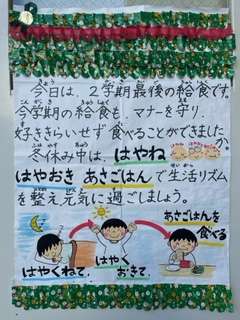 今日は、2学期最後の給食です。
今学期の給食も、マナーを守り、
好ききらいせず食べることができましたか。
冬休み中は、はやね
はやおき あさごはんで生活リズム
を整え元気に過ごしましょう。
あさごはんを
食べる
はやくねて、
はやく
おきて、